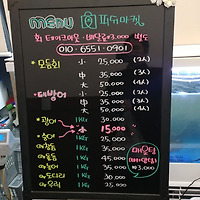 menu 피쉬마켓
회 테이크아웃 · 배달료 ₩3,000 별도
010-6551-0901
모듬회 小 25,000 (2人)
中 35,000 (3人)
大 50,000 (4人)
대방어 小 35,000 (2人)
中 (3人)
大 50,000 (4人)
광어 1KG 30,000
小 15,000
숭어 1KG 25,000
1KG 45,000
1KG 35,000
1KG 45,000
도다리 1KG 30,000
우럭 1KG 25,000
매운탕
₩3,000